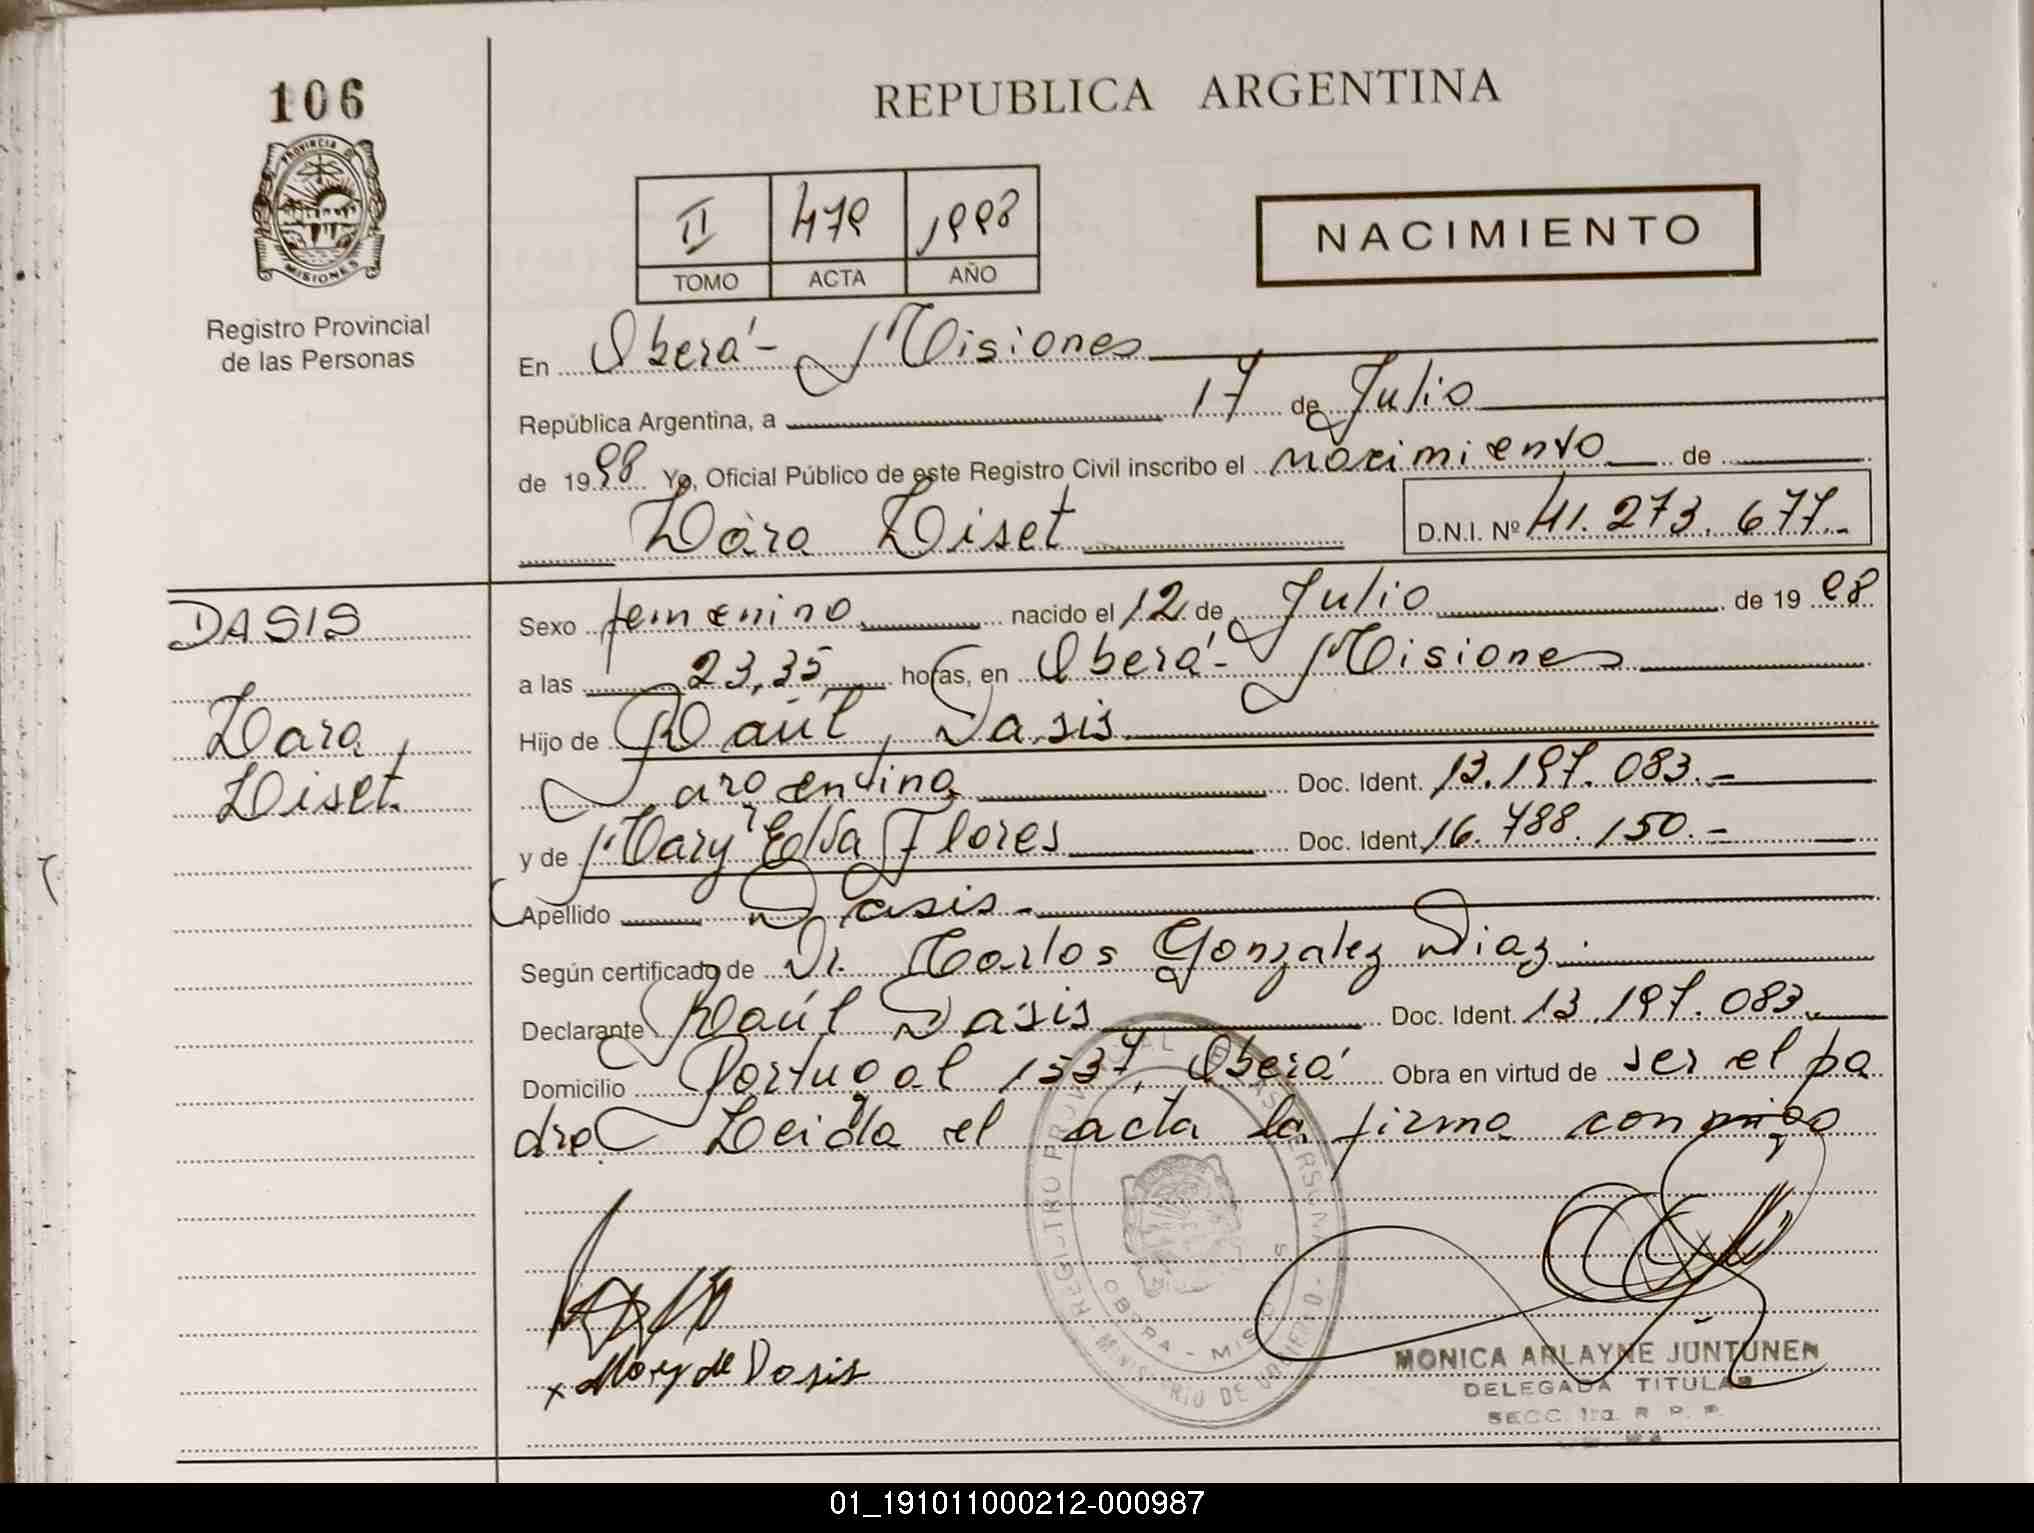 106
PROVINCIA DE
MISIONES
Registro Provincial
de las Personas
REPUBLICA ARGENTINA
II 479 1998
TOMO ACTA AÑO
NACIMIENTO
En Oberá - Misiones
República Argentina, a 17 de Julio
de 1998 Yo, Oficial Público de este Registro Civil inscribo el nacimiento de
Lara Liset D.N.I. Nº 41.273.677.-
DASIS
Lara
Liset
Sexo femenino nacido el 12 de Julio de 1998
a las 23,35 horas, en Oberá - Misiones
Hijo de Raúl Dasis
argentino Doc. Ident. 13.197.083.-
y de Mary Elva Flores Doc. Ident. 16.788.150.-
Apellido Dasis.-
Según certificado de Dr. Carlos Gonzalez Diaz.
Declarante Raúl Dasis Doc. Ident. 13.197.083.
Domicilio Portugal 1537, Oberá Obra en virtud de ser el pa
dre. Leida el acta la firma conmigo
x Mary de Dasis
REGISTRO PROVINCIAL DE LAS PERSONAS
MINISTERIO DE GOBIERNO
OBERA - MISIONES
MONICA ARLAYNE JUNTUNEN
DELEGADA TITULAR
SECC. 1ra. R. P. P.
01_191011000212-000987